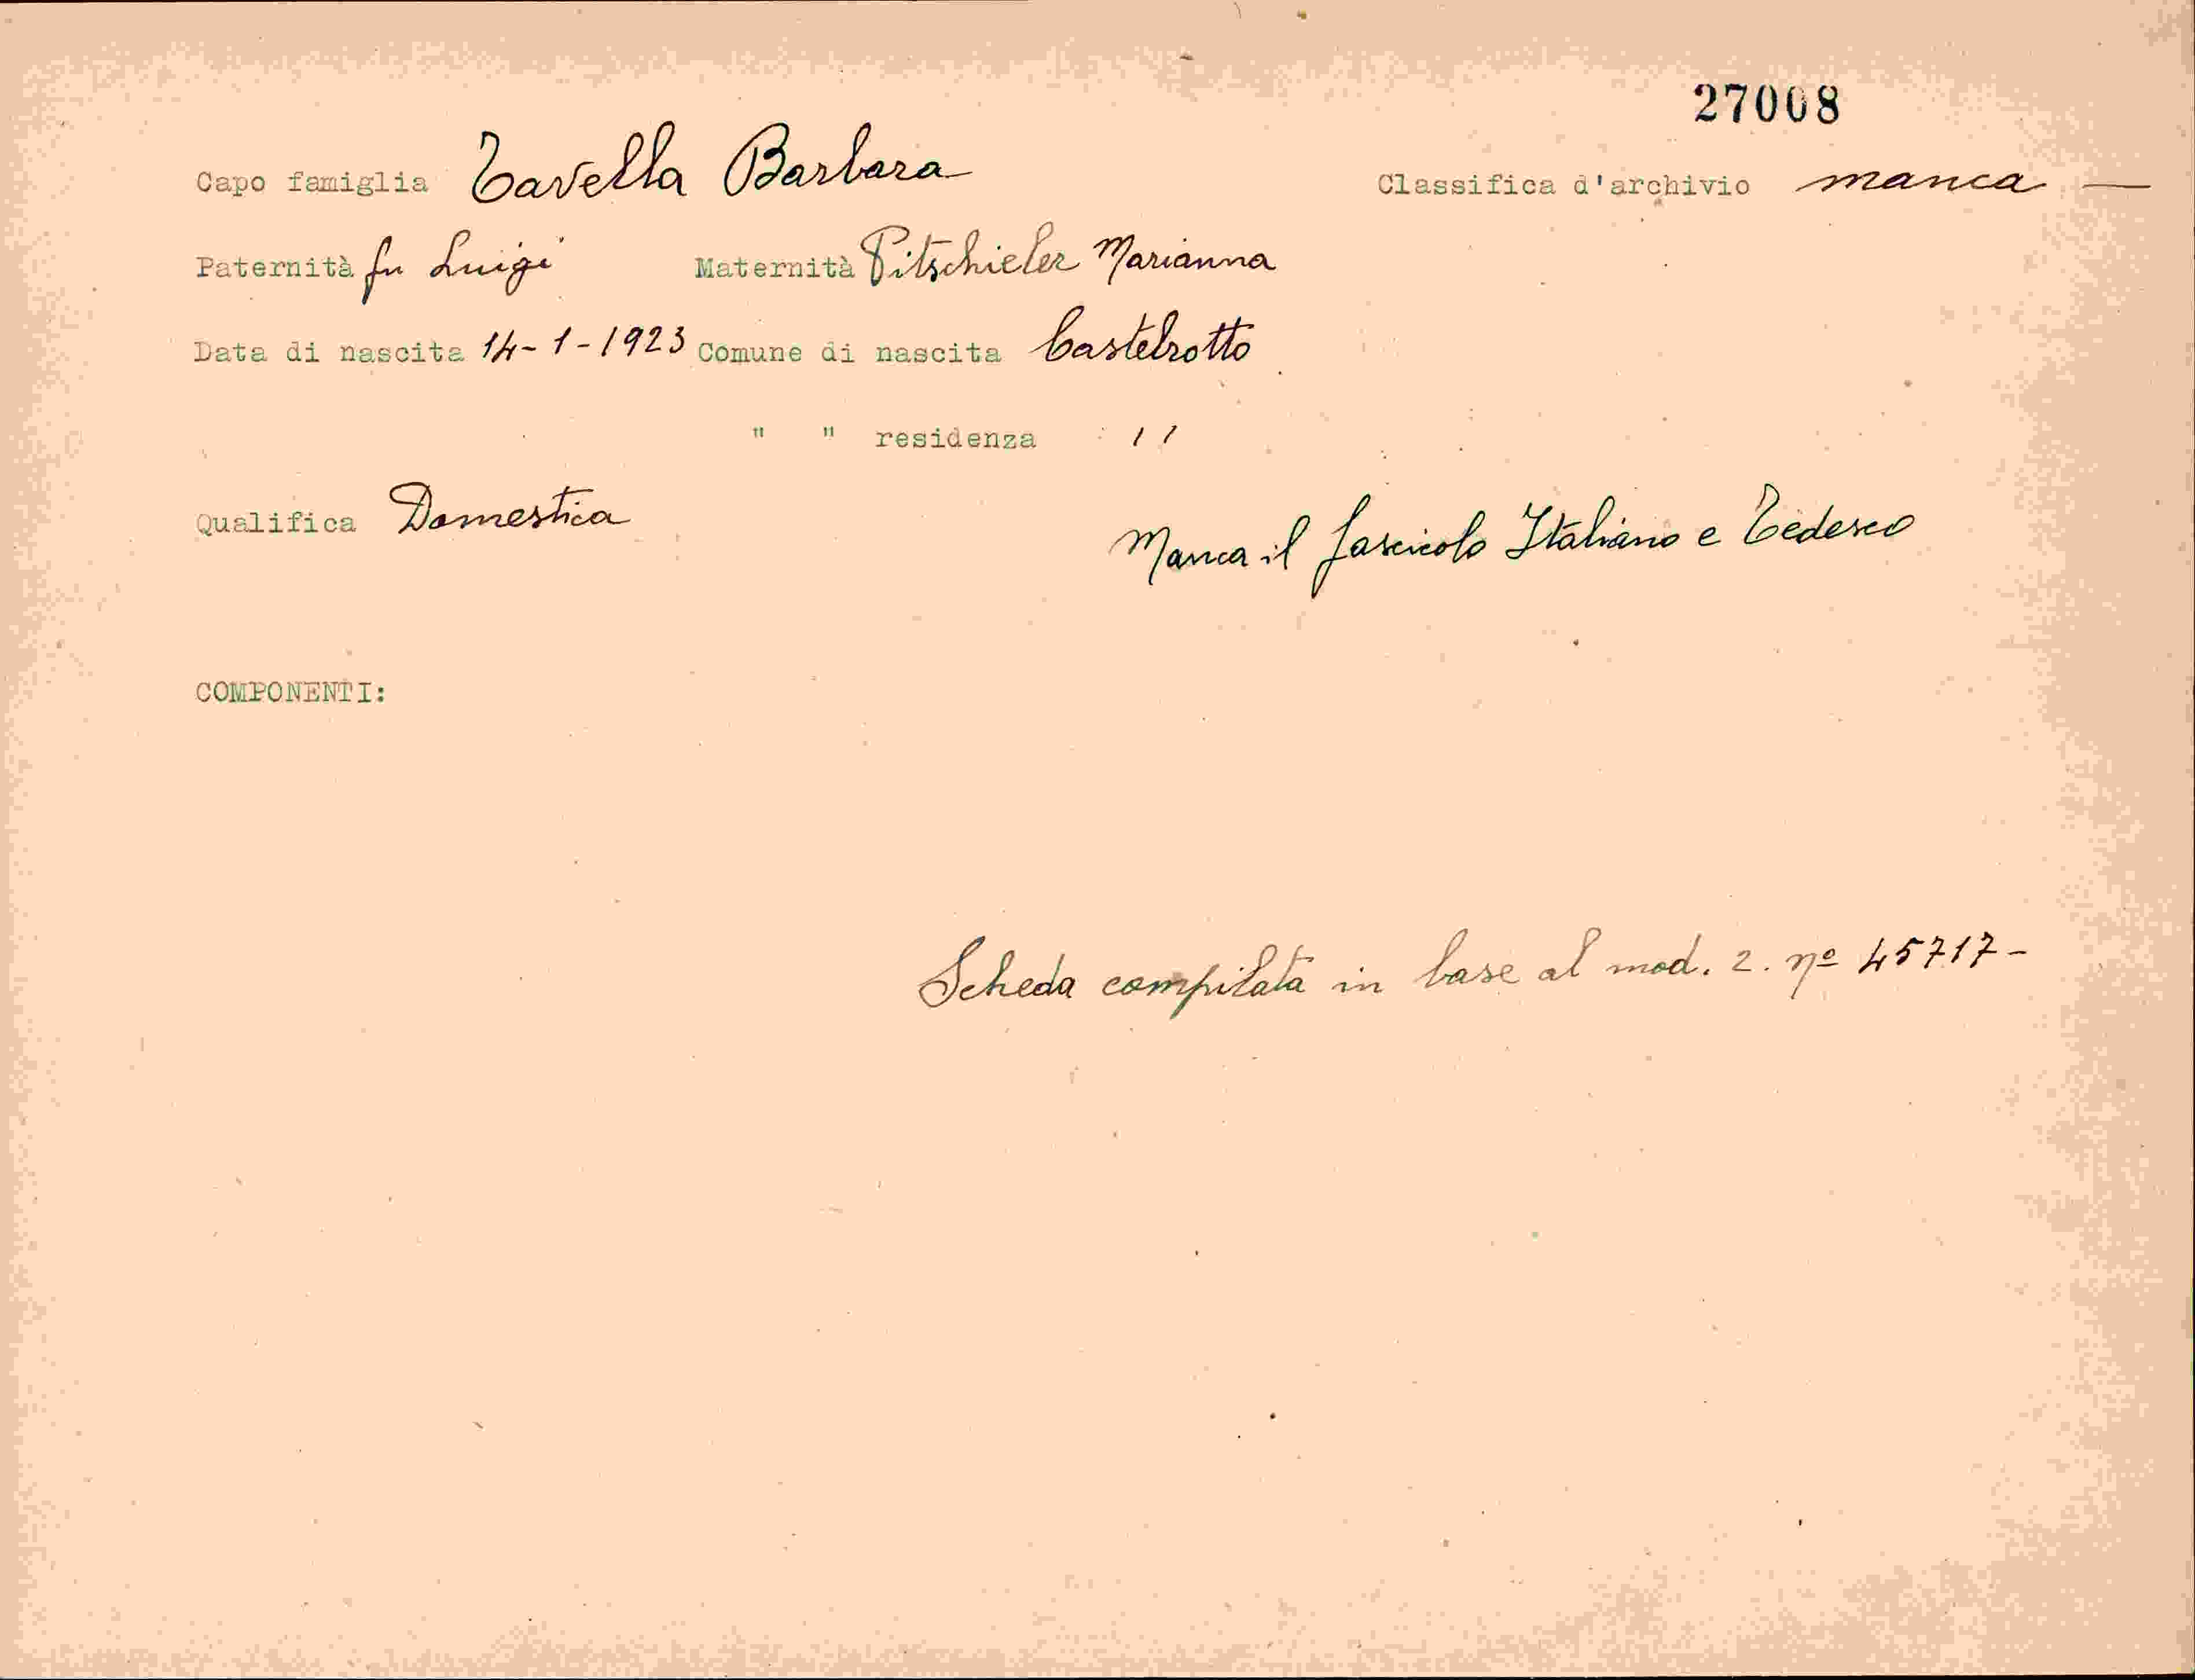 27008
Capo famiglia Tavella Barbara Classifica d'archivio manca —
Paternità fu Luigi Maternità Pitschieler Marianna
Data di nascita 14-1-1923 Comune di nascita Castelrotto
" " residenza " 
Qualifica Domestica
Manca il fascicolo Italiano e Tedesco
COMPONENTI:
Scheda compilata in base al mod. 2. nº 45717-